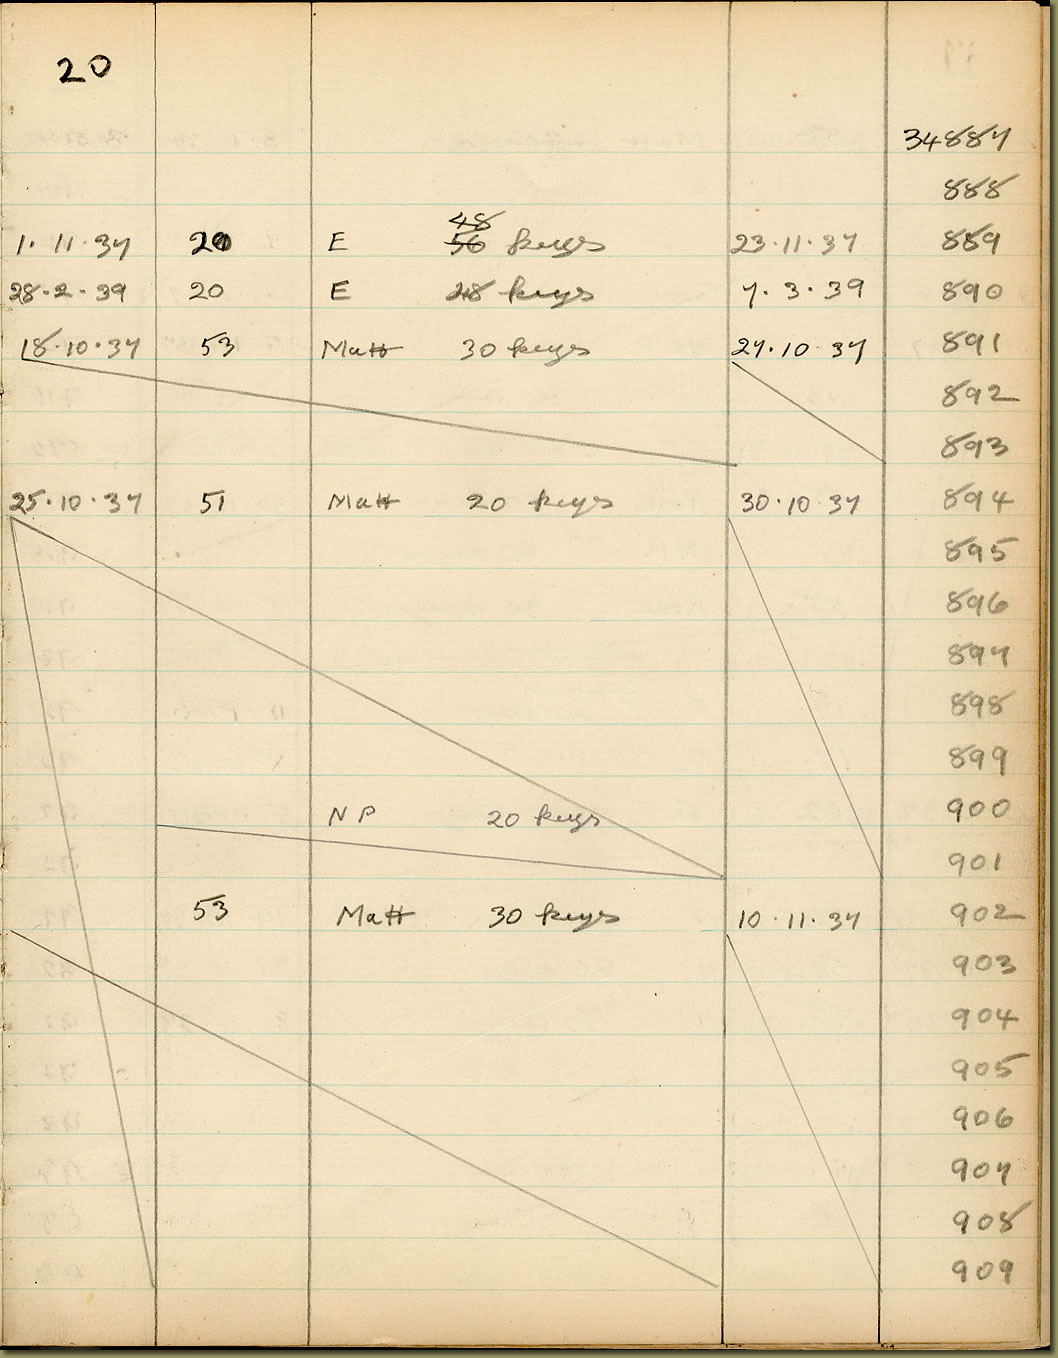 20
34887
888
48
1. 11. 37 20 E 56 keys 23.11.37 889
28.2.39 20 E 48 keys 7.3.39 890
18.10.37 53 Matt 30 keys 27.10.37 891
892
893
25.10.37 51 Matt 20 keys 30.10.37 894
895
896
897
898
899
NP 20 keys 900
901
53 Matt 30 keys 10.11.37 902
903
904
905
906
907
908
909